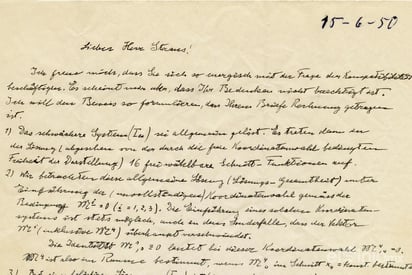 15-6-50
Lieber Herr Straus!
Ich freue mich, dass Sie sich so energisch mit der Frage der Kompatibilität
beschäftigen. Es scheint mir aber, dass Ihr Bedenken nicht berechtigt ist.
Ich will den Beweis so formulieren, dass Ihrem Briefe Rechnung getragen
ist.
1) Das schwächere System sei allgemein gelöst. Es treten dann in
der Lösung (abgesehen von der durch die freie Koordinatenwahl bedingten
Freiheit der Darstellung) 16 frei wählbare Schnitt-Funktionen auf.
2) Wir betrachten diese allgemeine Lösung (Lösungs-Gesamtheit) unter
Einführung der (unvollständigen) Koordinatenwahl gemäss der
Bedingung (i = 1, 2, 3). Die Einführung eines solchen Koordinaten-
systems ist stets möglich, auch in dem Sonderfalle, dass der Vektor
überhaupt verschwindet.
Die Identität lautet bei dieser Koordinatenwahl
ist also im Raume bestimmt, wenn im Schnitt